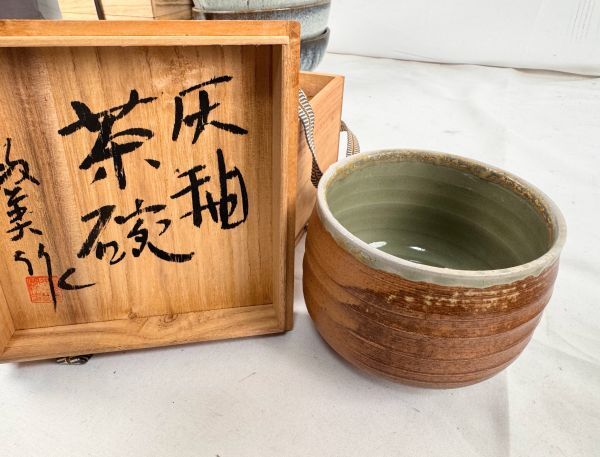 灰釉
茶碗
敏美作